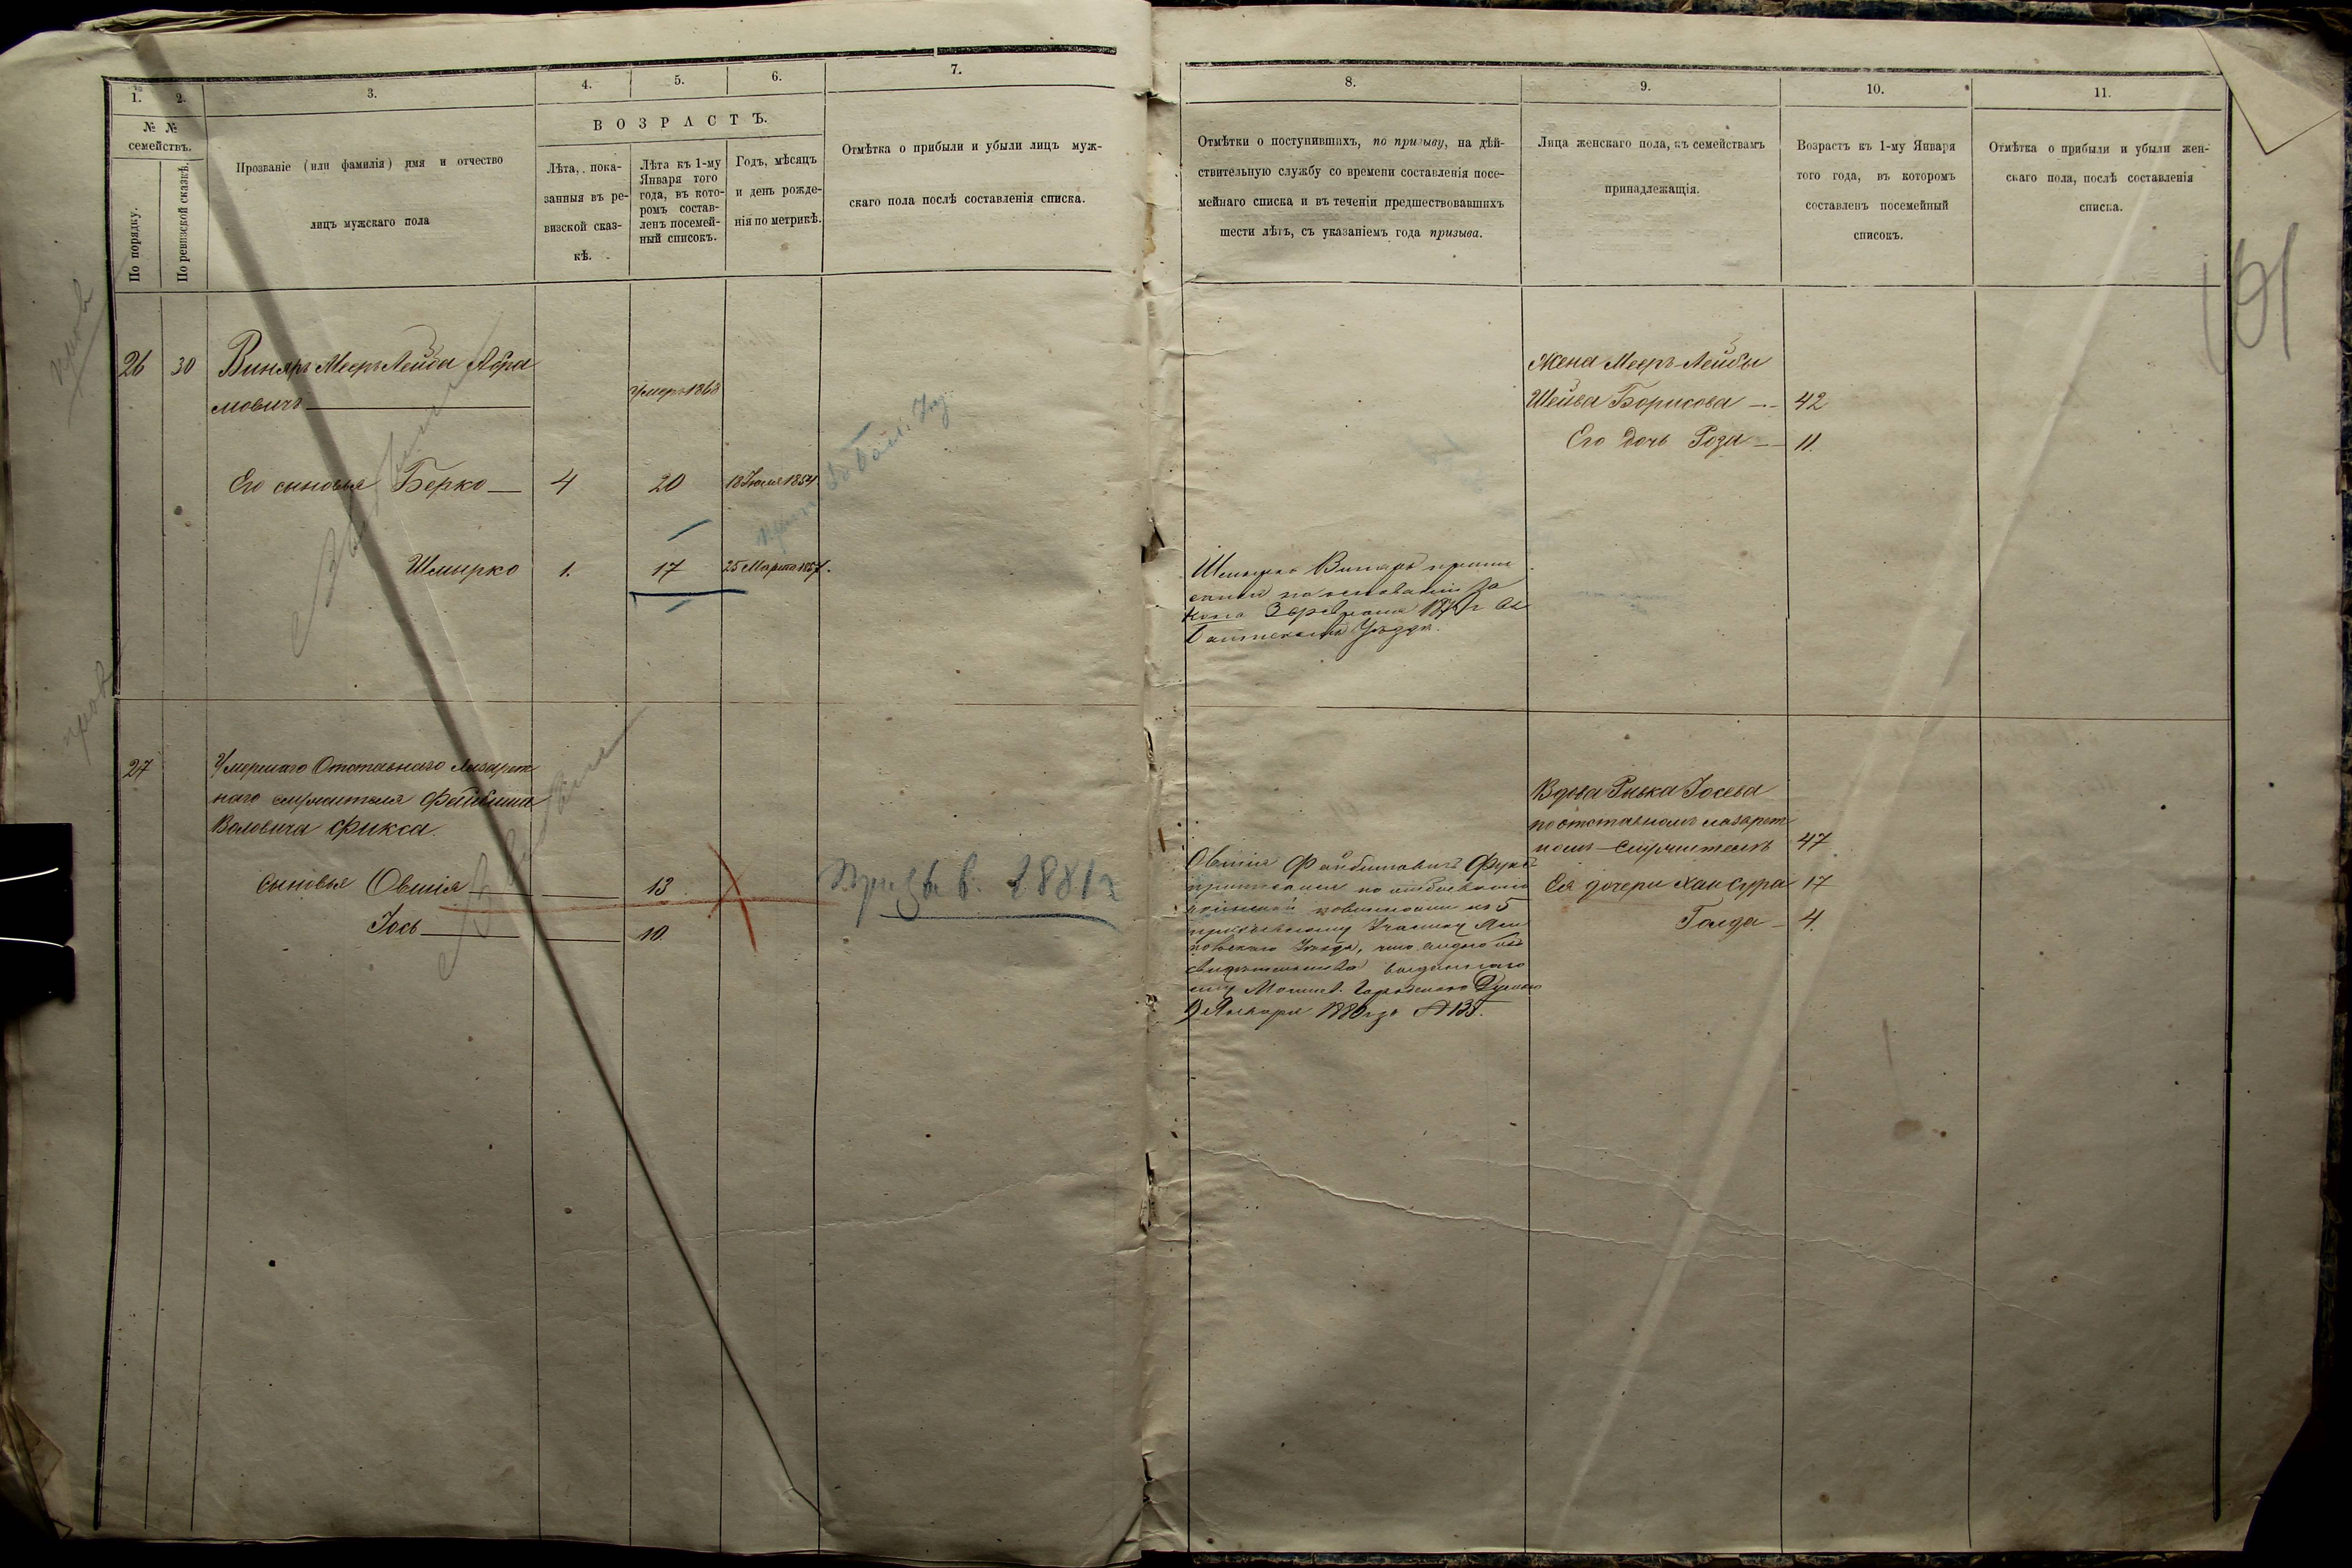 1.
2.
3.
4.
5.
6.
7.
№ №
семействъ.
По порядку.
По ревизской сказкѣ.
Прозваніе (или фамилія) имя и отчество
лицъ мужскаго пола
ВОЗРАСТЪ.
Лѣта, пока-
занныя въ ре-
визской сказ-
кѣ.
Лѣта къ 1-му
Января того
года, въ кото-
ромъ состав-
ленъ посемей-
ный списокъ.
Годъ, мѣсяцъ
и день рожде-
нія по метрикѣ.
Отмѣтка о прибыли и убыли лицъ муж-
скаго пола послѣ составленія списка.
26 30 Винярь Мееръ Лейба Абра
мовичъ
Умеръ 1868
Его сыновья Берко 4 20 18 Іюля 1854
Шмырко 1. 17 25 Марта 1857.
27 Умершаго Отставнаго лазарет
наго служителя Файбиша
Воловича Фикса
сыновья Овшія 13
Іось 10
Призыв. 1881 г
8.
9.
10.
11.
Отмѣтки о поступившихъ, по призыву, на дѣй-
ствительную службу со времени составленія посе-
мейнаго списка и въ теченіи предшествовавшихъ
шести лѣтъ, съ указаніемъ года призыва.
Лица женскаго пола, къ семействамъ
принадлежащія.
Возрастъ къ 1-му Января
того года, въ которомъ
составленъ посемейный
списокъ.
Отмѣтка о прибыли и убыли жен-
скаго пола, послѣ составленія
списка.
Жена Мееръ-Лейбы
Шейва Борисова 42
Его дочь Роза 11.
Винярь припи
санъ на основаніи За
кона 3 февраля
уѣзда.
Вдова Ривка Іосева
по отставномъ лазарет
номъ служителѣ 47
Ея дочери Хан Сура 17
Голда 4.
Овшія Файбишовичъ Фукс
приписанъ по отбыванію
воинской повинности къ 5
призывному Участку Ям
польскаго Уѣзда, что видно изъ
свидѣтельства выданнаго
ему Могилев. Городскою Думою
Января 1880 г за № 135.